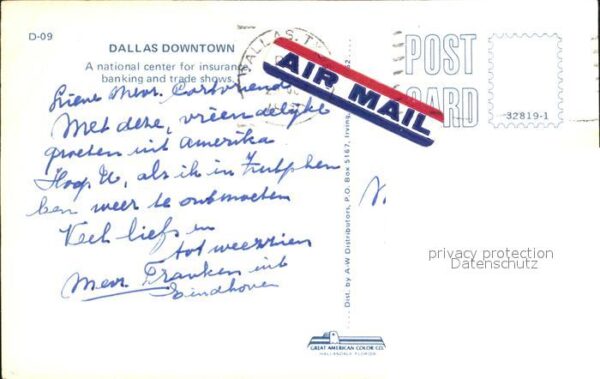 D-09
DALLAS DOWNTOWN
A national center for insurance
banking and trade shows.
Lieve Mevr.
Met deze, vriendelijke
groeten uit Amerika
Hoop U, als ik in Zutphen
ben weer te ontmoeten
Veel liefs en
tot weerzien
Mevr. Franken uit
Eindhoven
DALLAS, T
AIR MAIL
POST
CARD
32819-1
Dist. by A-W Distributors, P.O. Box 5167, Irving,
privacy protection
Datenschutz
GREAT AMERICAN COLOR CO.
HALLANDALE FLORIDA